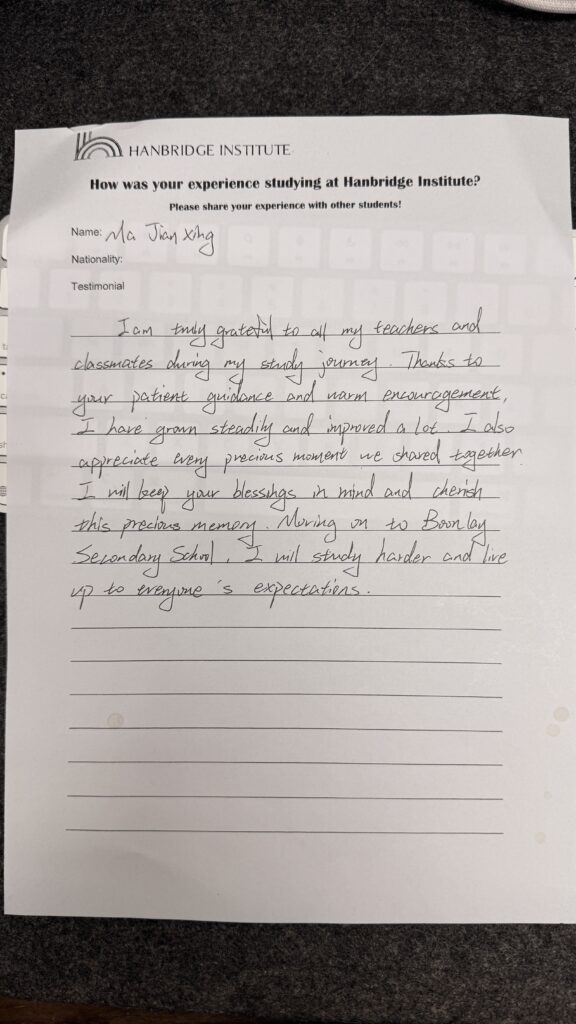 HANBRIDGE INSTITUTE
How was your experience studying at Hanbridge Institute?
Please share your experience with other students!
Name: Ma Jian Xing
Nationality:
Testimonial
I am truly grateful to all my teachers and
classmates during my study journey. Thanks to
your patient guidance and warm encouragement,
I have grown steadily and improved a lot. I also
appreciate every precious moment we shared together.
I will keep your blessings in mind and cherish
this precious memory. Moving on to Boonlay
Secondary School, I will study harder and live
up to everyone's expectations.